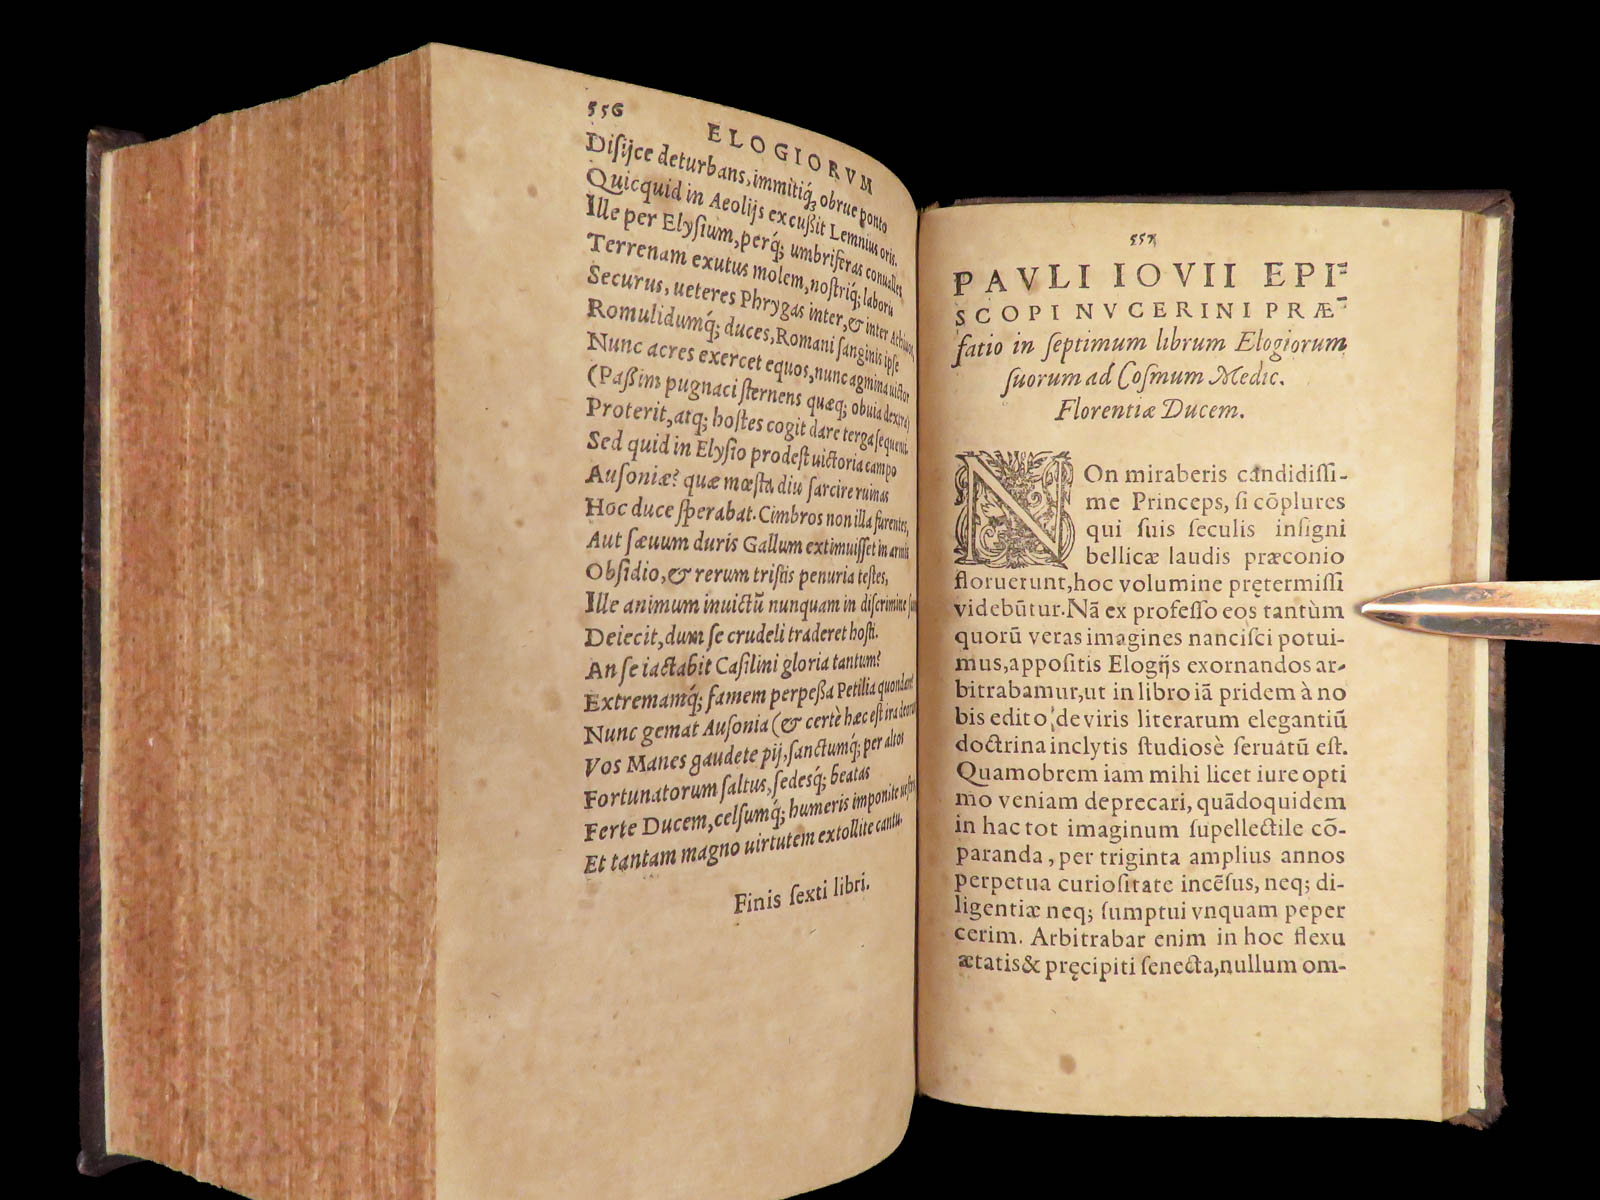 556
ELOGIORVM
Diſijce deturbans, immitiq́; obrue ponto
Quicquid in Aeolijs excußit Lemnius oris.
Ille per Elyſium, perq́; umbriferas conualles
Terrenam exutus molem, noſtriq́; laboris
Securus, ueteres Phrygas inter, & inter Achiuos,
Romulidumq́; duces, Romani ſanginis ipſe
Nunc acres exercet equos, nunc agmina uictor
(Paßim pugnaci ſternens quæq; obuia dextra)
Proterit, atq; hoſtes cogit dare terga ſequenti.
Sed quid in Elyſio prodeſt uictoria campo
Auſoniæ? quæ mœsta diu ſarcire ruinas
Hoc duce ſperabat. Cimbros non illa furentes,
Aut ſæuum duris Gallum extimuiſſet in armis
Obſidio, & rerum triſtis penuria teſtes,
Ille animum inuictū nunquam in diſcrimine
Deiecit, dum ſe crudeli traderet hoſti.
An ſe iactabit Caſilini gloria tantum?
Extremamq́; famem perpeßa Petilia quondam?
Nunc gemat Auſonia (& certè hæc eſt ira deorum
Vos Manes gaudete pij, ſanctumq́; per altos
Fortunatorum ſaltus, ſedesq́; beatas
Ferte Ducem, celſumq́; humeris imponite
Et tantam magno uirtutem extollite cantu.
Finis ſexti libri.
557
PAVLI IOVII EPI-
SCOPI NVCERINI PRÆ-
fatio in ſeptimum librum Elogiorum
ſuorum ad Coſmum Medic.
Florentiæ Ducem.
NOn miraberis candidiſſi-
me Princeps, ſi cōplures
qui ſuis ſeculis inſigni
bellicæ laudis præconio
floruerunt, hoc volumine prętermiſſi
videbūtur. Nā ex profeſſo eos tantùm
quorū veras imagines nanciſci potui-
mus, appoſitis Elogijs exornandos ar-
bitrabamur, ut in libro iā pridem à no
bis edito, de viris literarum elegantiū
doctrina inclytis ſtudiosè ſeruatū eſt.
Quamobrem iam mihi licet iure opti
mo veniam deprecari, quādoquidem
in hac tot imaginum ſupellectile cō-
paranda, per triginta amplius annos
perpetua curioſitate incēſus, neq; di-
ligentiæ neq; ſumptui vnquam peper
cerim. Arbitrabar enim in hoc flexu
ætatis & pręcipiti ſenecta, nullum om-